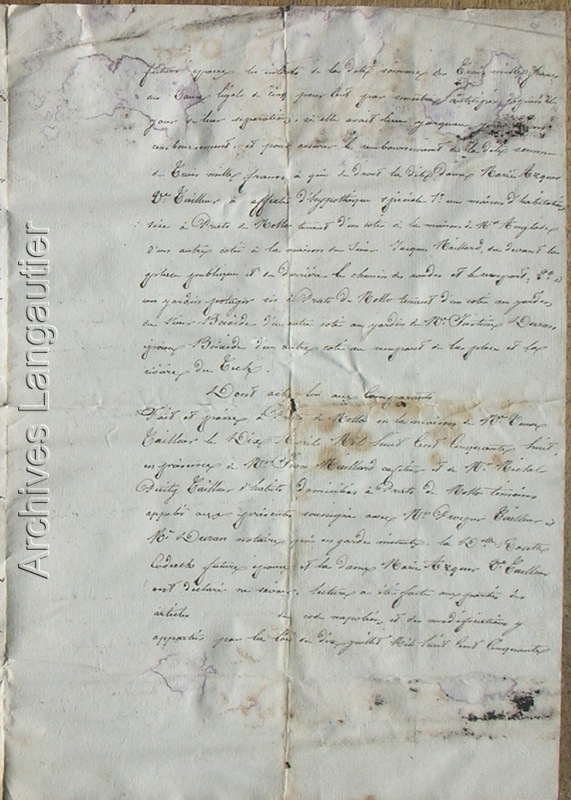 future épouse les intérêts de la dite somme de trois mille francs
au taux légal de cinq pour cent par
jour de leur séparation, si elle avait lieu
remboursement: et pour assurer le remboursement de la dite somme
de trois mille francs à qui de droit la dite dame Marie Arquer
Ve Tailleur a affecté d'hypothèque spéciale 1º une maison d'habitation
sise à Prats de Mollo tenant d'un coté à la maison de Mr Anglade
d'un autre coté à la maison du Sieur Jacques Maillard, au devant la
place publique et au derrière le chemin des rondes et le rempart; 2º
un jardin potager sis à Prats de Mollo tenant d'un coté au jardin
du Sieur Boixède d'un autre coté au jardin de Mme Justine Duran
épouse Boixède d'un autre coté au rempart de la place et la
rivière du Tech.
Dont acte lu aux comparants
Fait et passé à Prats de Mollo en la maison de Mme Veuve
Tailleur le Dix Avril Mil huit cent cinquante huit,
en présence de Mrs Jean Maillard et de Mr Michel
Tailleur d'habits domiciliés à Prats de Mollo témoins
appelés aux présentes soussignés avec Mr Tailleur et
Mr Duran notaire qui en garde minute. la Dlle
Coderch future épouse et la dame Marie Arquer Ve Tailleur
ont déclaré ne savoir. lecture a été faite aux parties des
articles du code napoléon et des modifications y
apportées par la loi du dix juillet Mil huit cent cinquante
Archives Langautier